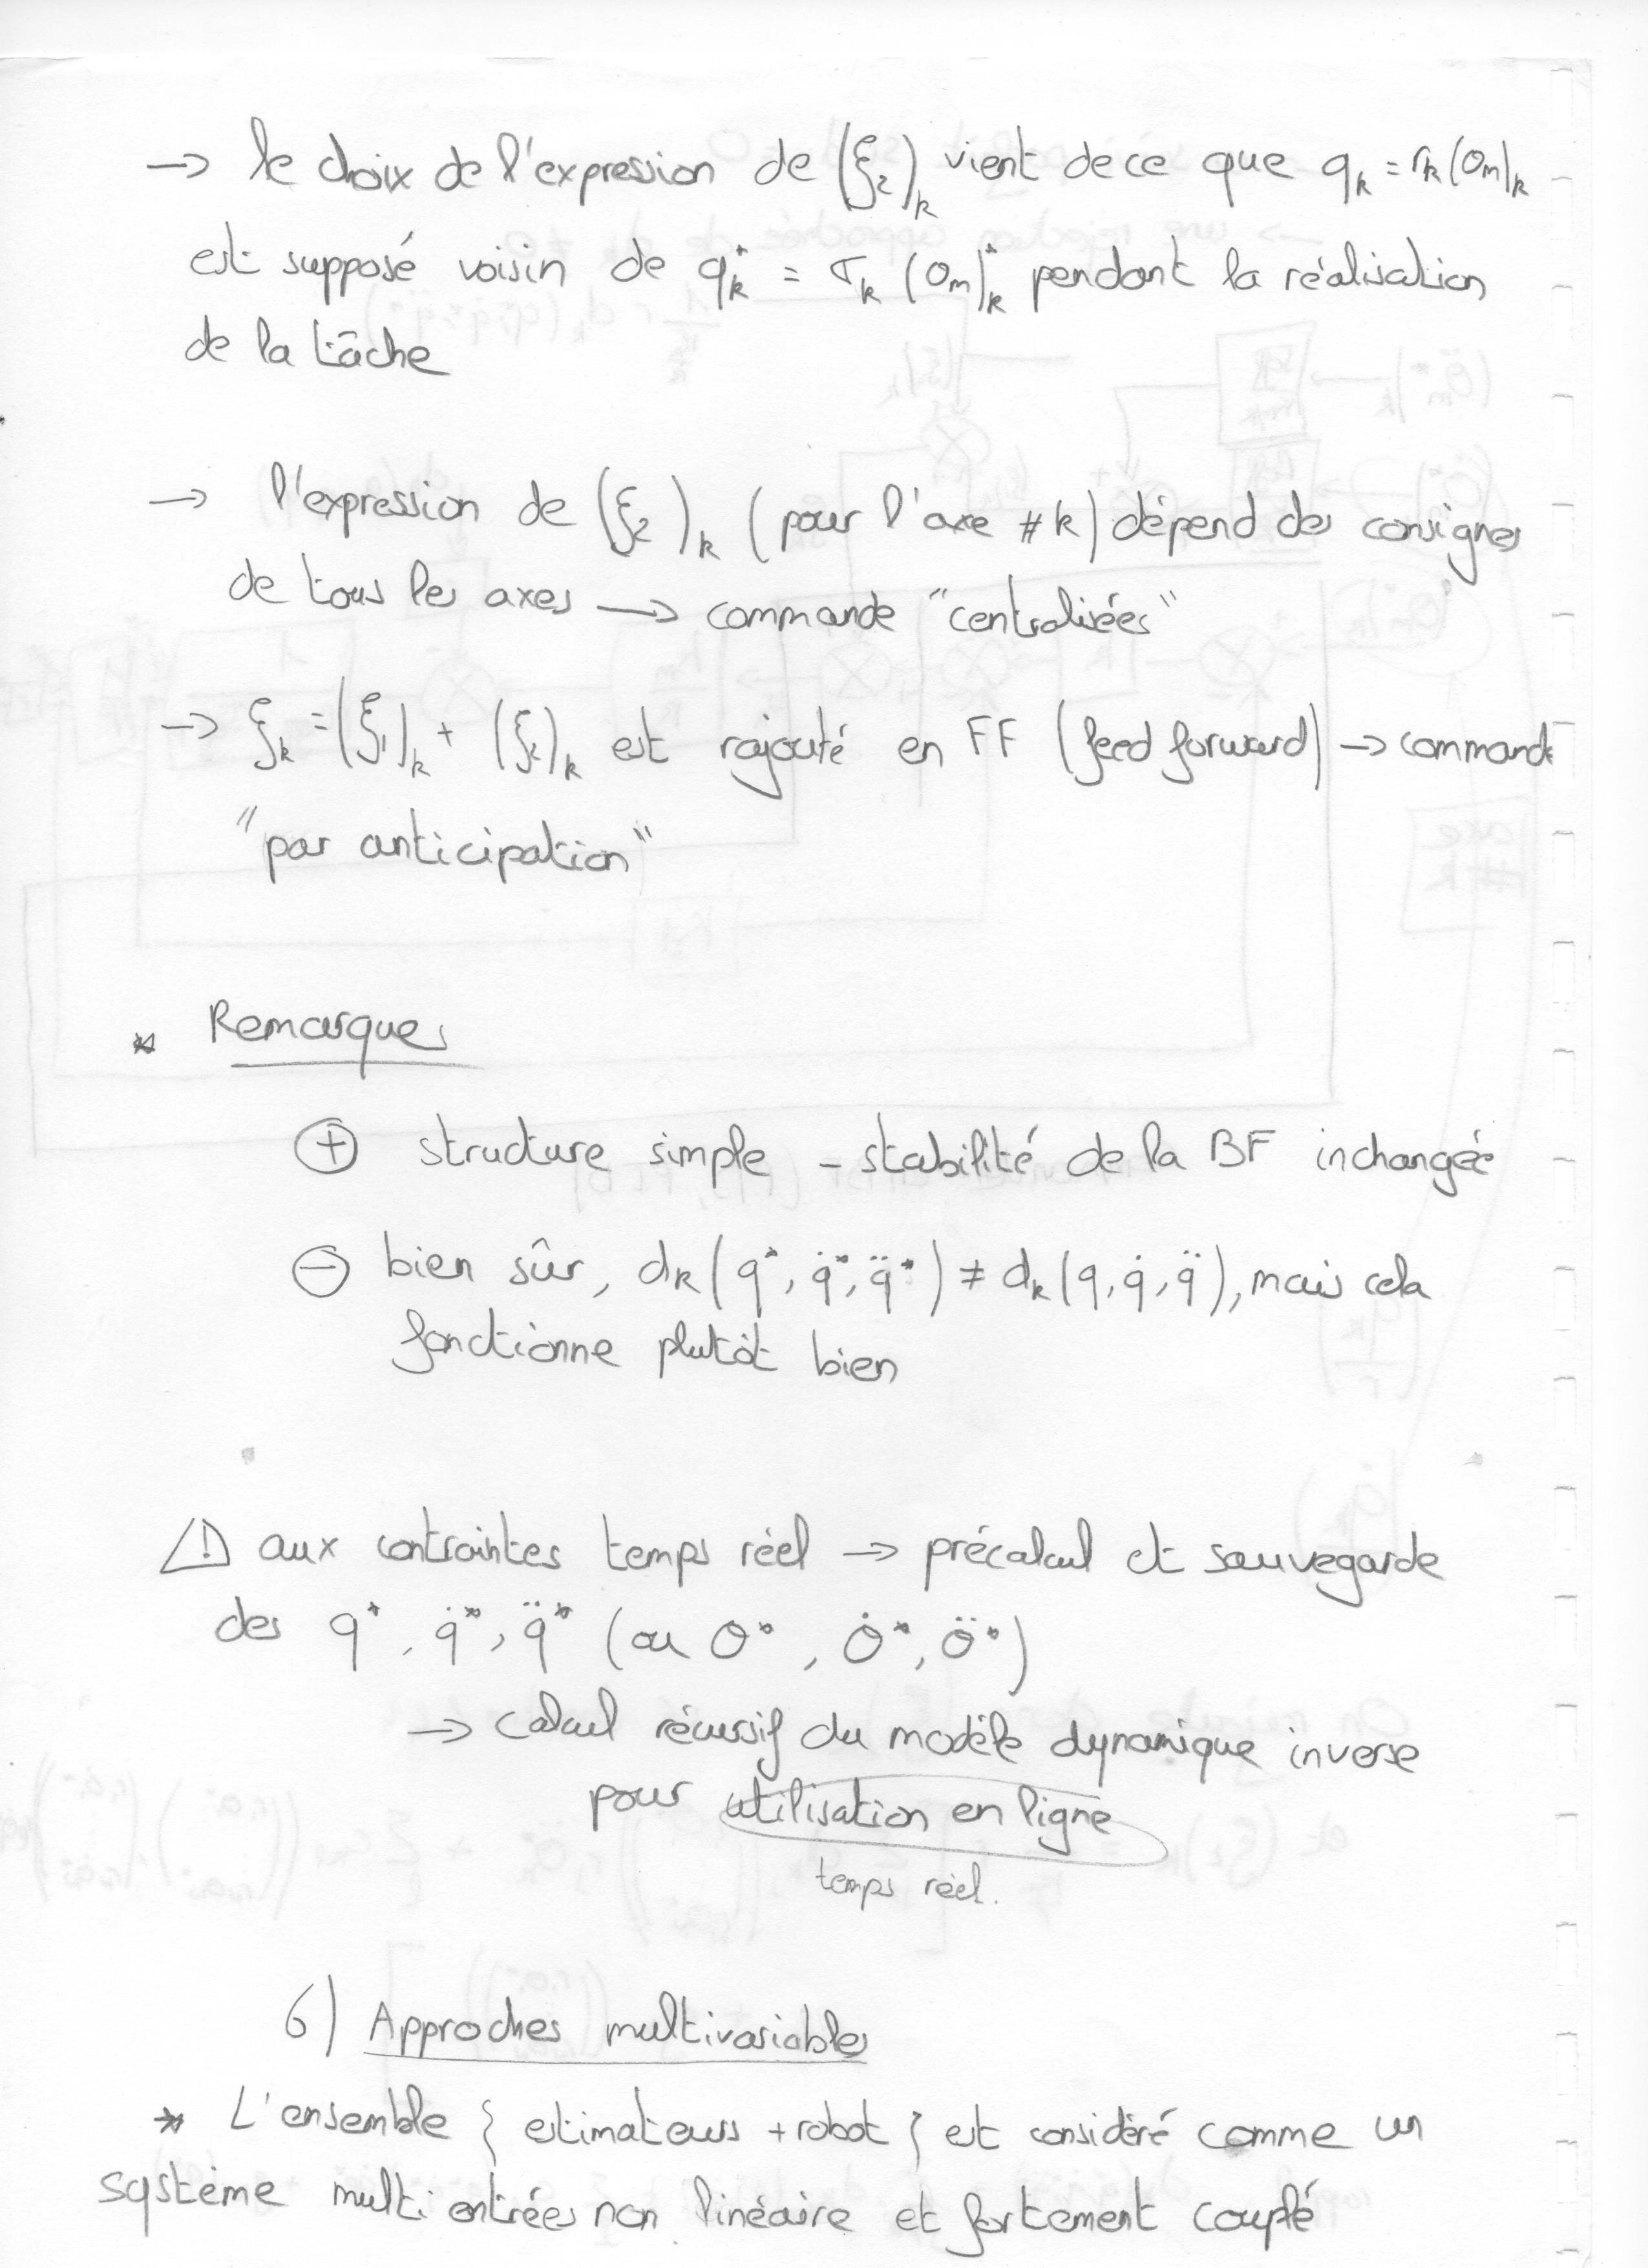 → le choix de l'expression de (ξ₂)ₖ vient de ce que qₖ = rₖ(θₘ)ₖ
est supposé voisin de qₖ* = rₖ (θₘ)ₖ* pendant la réalisation
de la tâche
→ l'expression de (ξ₂)ₖ (pour l'axe #k) dépend des consignes
de tous les axes → commande "centralisées"
→ ξₖ = (ξ₁)ₖ + (ξ₂)ₖ est rajouté en FF (feed forward) → commande
"par anticipation"
* Remarques
⊕ structure simple - stabilité de la BF inchangée
⊖ bien sûr, dₖ(q*, q̇*, q̈*) ≠ dₖ(q, q̇, q̈), mais cela
fonctionne plutôt bien
⚠ aux contraintes temps réel → précalcul et sauvegarde
des q*, q̇*, q̈* (ou θ*, θ̇*, θ̈*)
→ calcul récursif du modèle dynamique inverse
pour utilisation en ligne
temps réel.
6) Approches multivariables
* L'ensemble { estimateurs + robot } est considéré comme un
système multi entrées non linéaire et fortement couplé